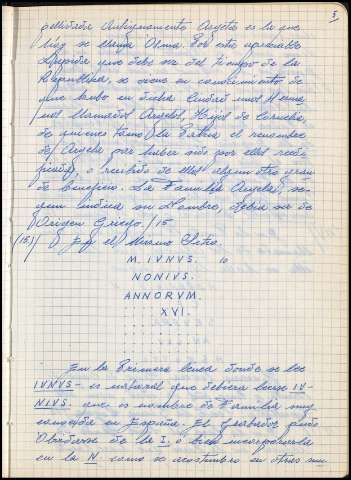 5
pellidada Antiguamente Augeta es la que
hoy se llama Olma. Por esta apreciable
Lapida que debe ser del tiempo de la
Republica, se viene en conocimiento de
que hubo en dicha Ciudad unos Herma
nos llamados Augetos, Hijos de Cornelio,
de quienes tomó la Patria el renombre
de Augeta por haber sido por ellos reedi
ficada, o recibido de ellos algun otro gran
de beneficio. La Familia Augeta, se-
gun indica su Nombre, debia ser de
Origen Griego. /15
(15)/ En el Mismo Sitio.
M. IVNVS. 10
NONIVS.
ANNORVM.
XVI.
En la Primera linea donde se lee
IVNVS- es natural que debiera leerse IV-
NIVS. que es nombre de Familia muy
conocida en España. El grabador pudo
Olvidarse de la I, o bien incorporarla
en la N. como se acostumbró en otras mu